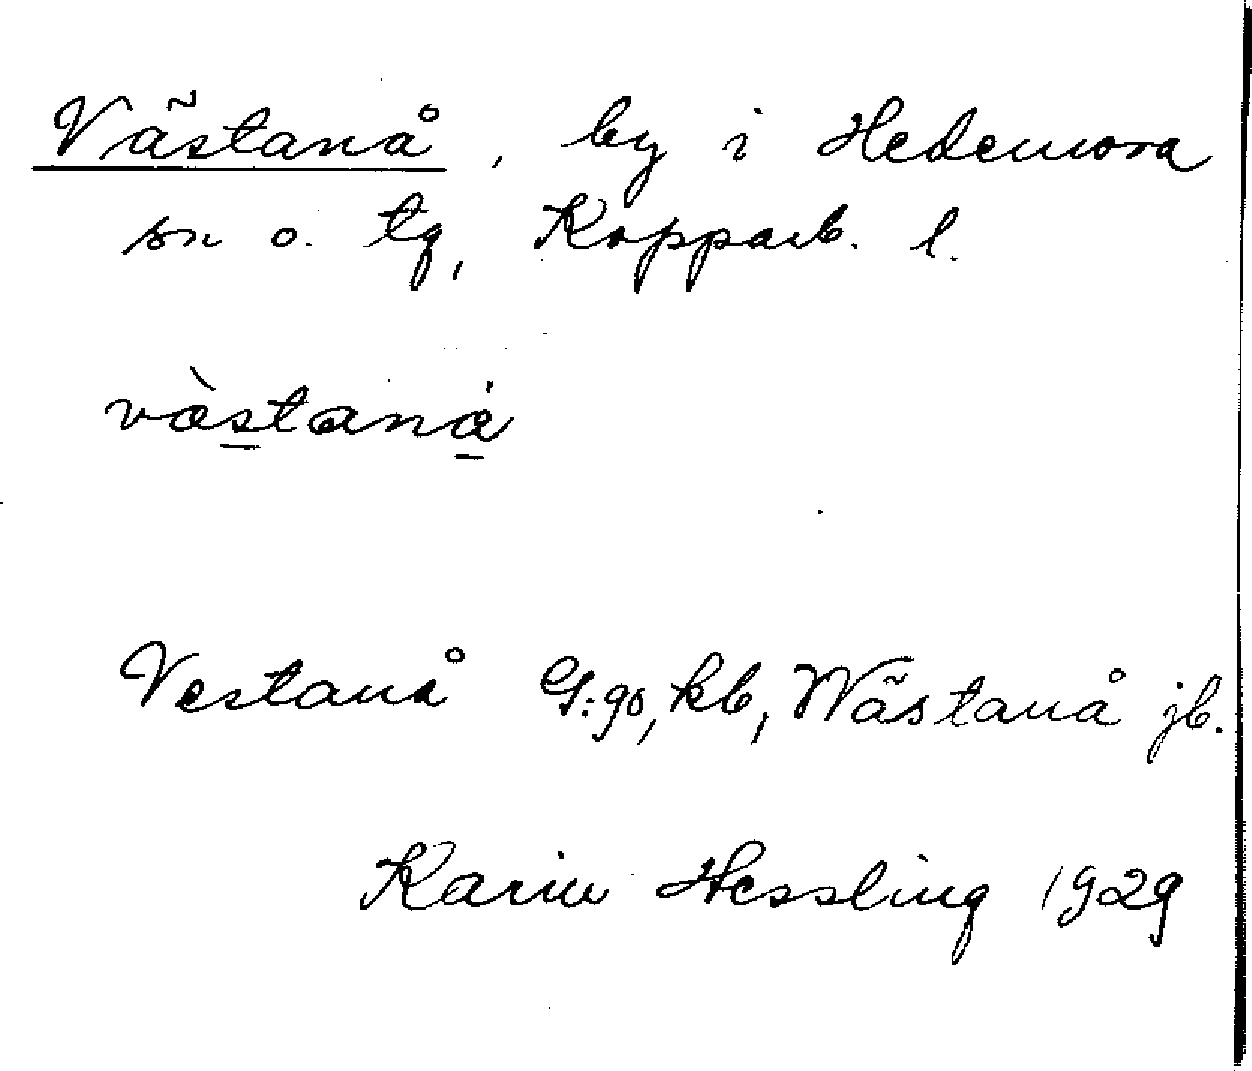 Västanå, by i Hedemora
sn o. tg, Kopparb. l.
væ̀staná̱
Vestanå G:go, kb, Wästanå jb.
Karin Hessling 1929